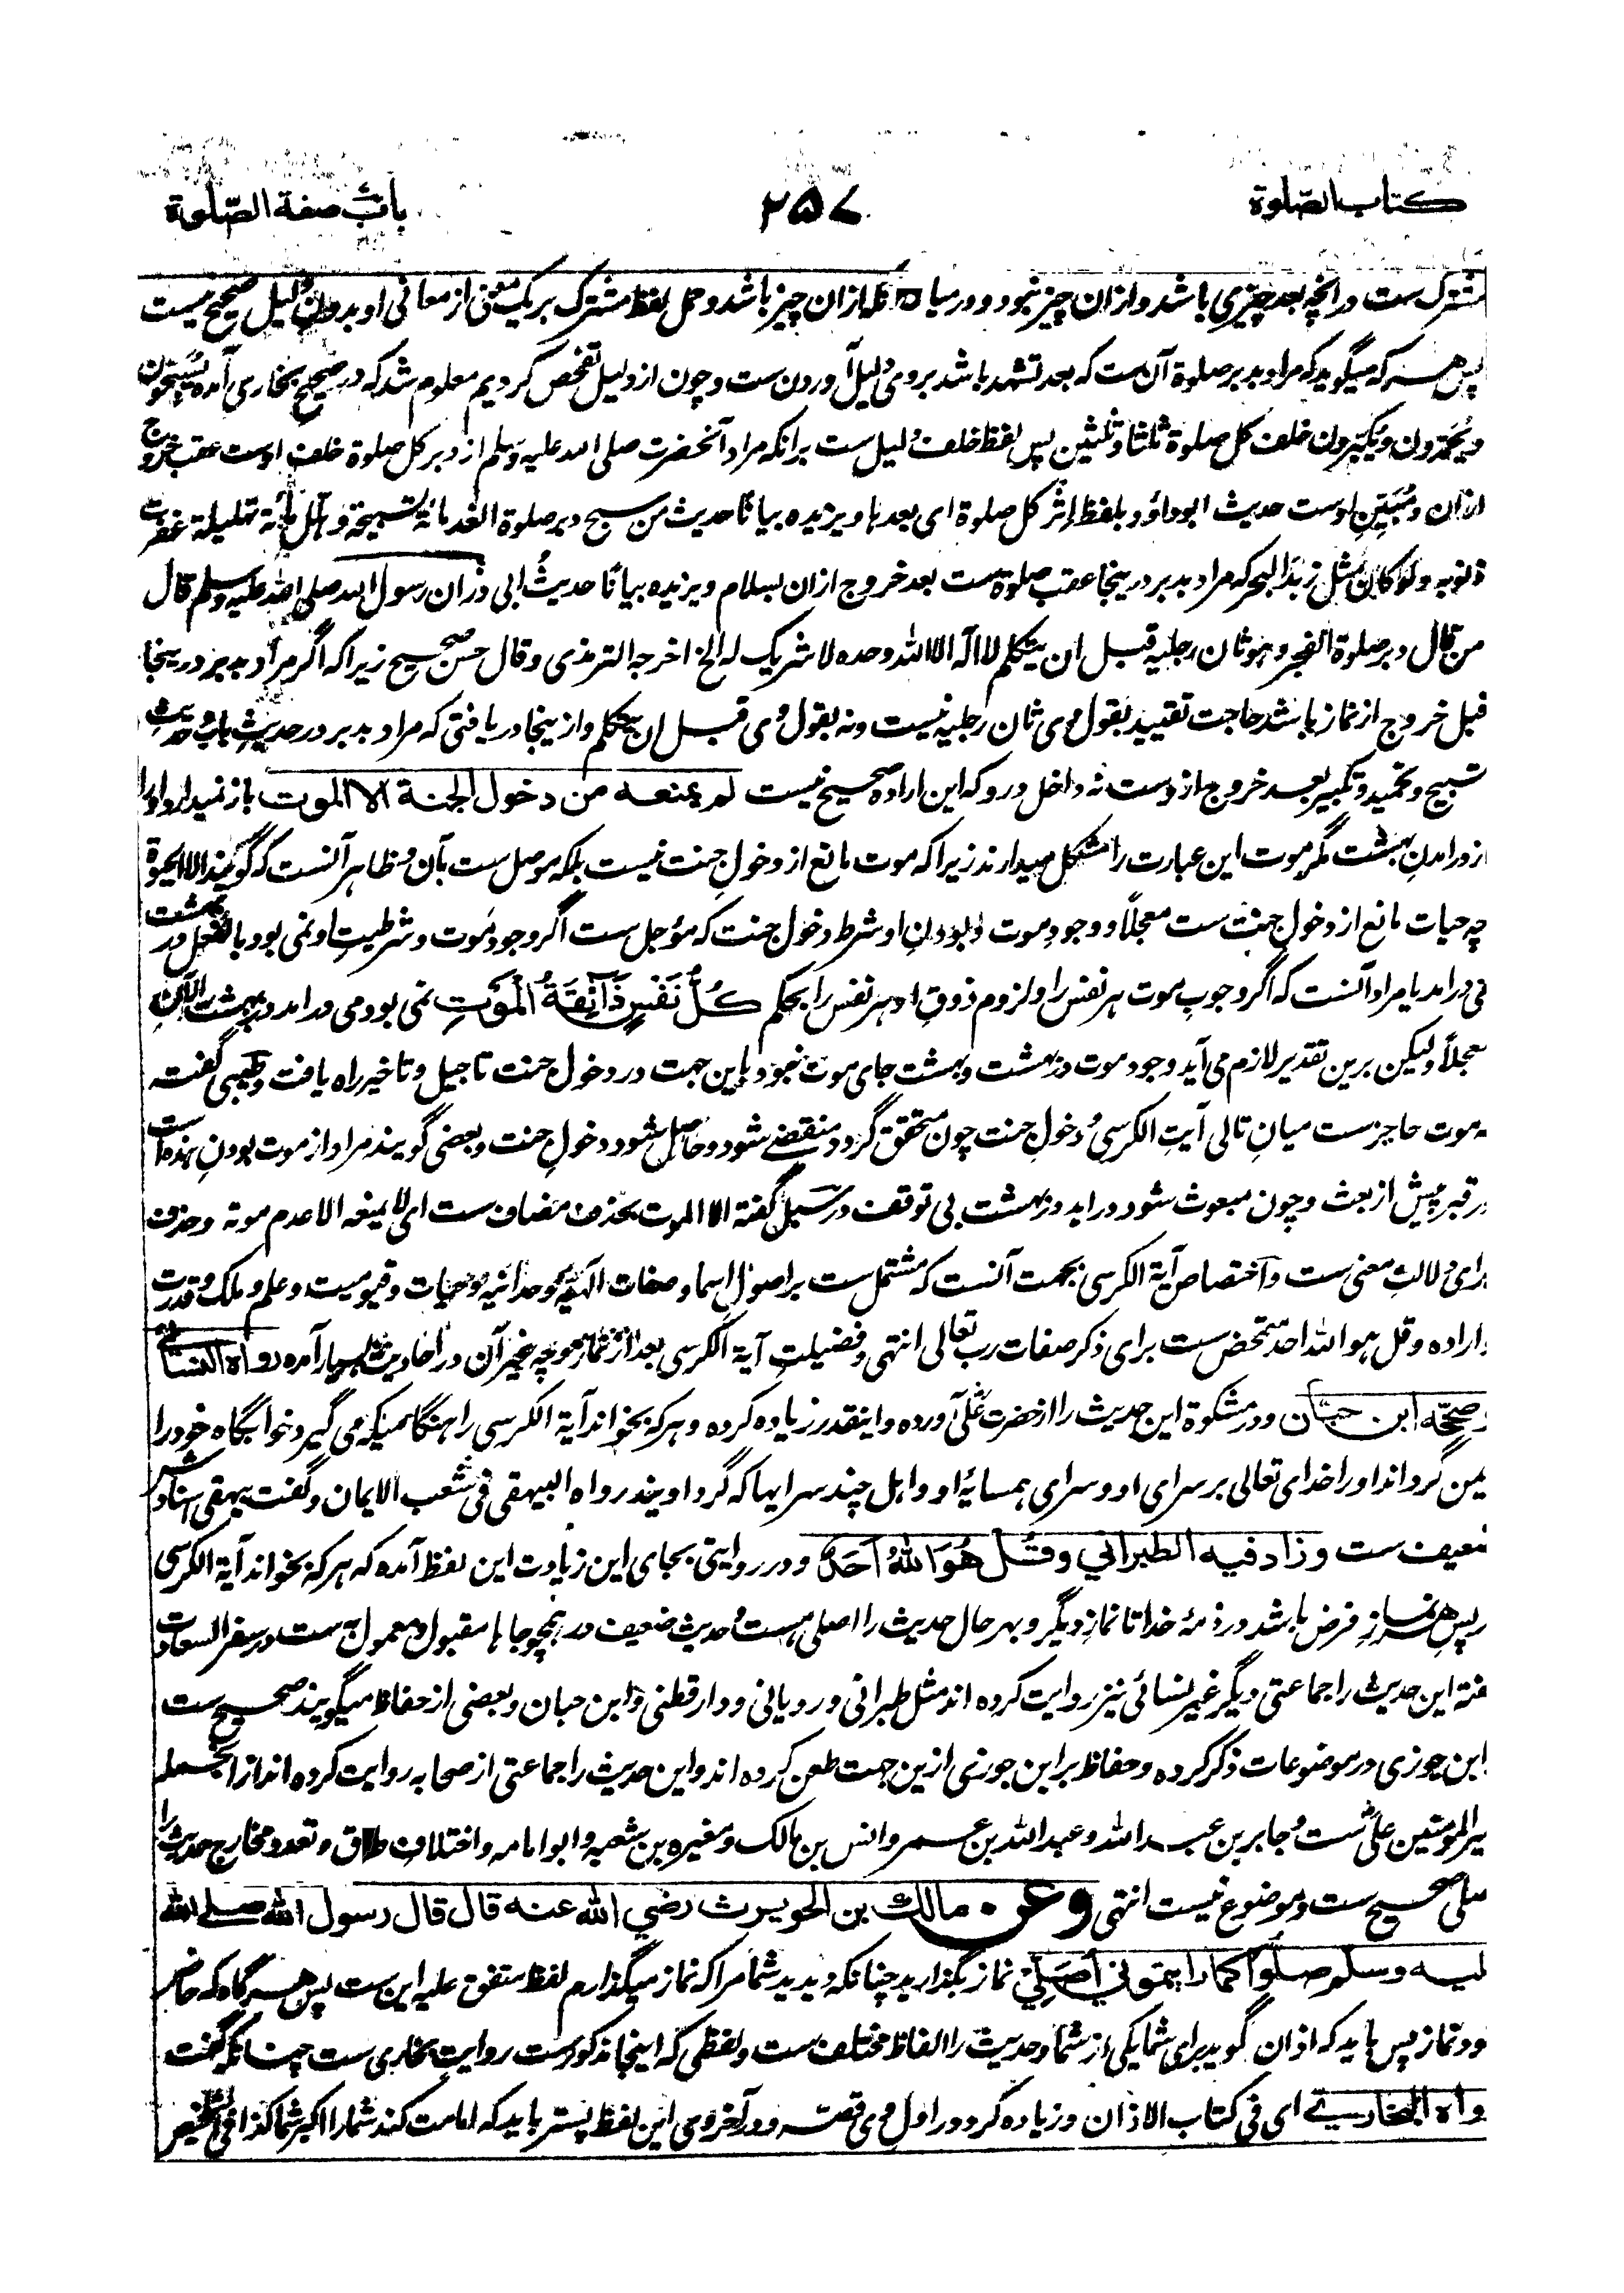 کتاب الصّلوة
۲۵۷
باب صفة الصّلوة
مشترک ست در انچه بعد چیزی باشد و ازان چیز نبود و درمیان که ازان چیز باشد و حمل لفظ مشترک بر یک معنی از معانی او بدون دلیل صحیح نیست
پس هر که میگوید که مراد بدبر صلوة آن ست که بعد تشهد باشد بر وی دلیل آوردن ست و چون از دلیل تفحص کردیم معلوم شد که در صحیح بخاری آمده یسبحون
و یحمدون و یکبرون خلف کل صلوة ثلثا و ثلثین پس لفظ خلف دلیل ست برانکه مراد آنحضرت صلی الله علیه وسلم از دبر کل صلوة خلف اوست عقب خروج
ازان و مُبیّنِ اوست حدیث ابوداؤد بلفظ اِثر کل صلوة ای بعدها و یزیده بیانًا حدیث من سبح دبر صلوة الغداة مائة تسبیحة و هلل مائة تهلیلة غفرت
ذنوبه ولو کان مثل زبد البحر که مراد بدبر درینجا عقب صلوة ست بعد خروج ازان بسلام و یزیده بیانًا حدیثُ ابی ذر ان رسول الله صلی الله علیه وسلم قال
من قال دبر صلوة الفجر وهو ثان رجلیه قبل ان یتکلم لا اله الا الله وحده لا شریک له الخ اخرجه الترمذی وقال حسن صحیح زیرا که اگر مراد بدبر درینجا
قبل خروج از نماز باشد حاجت تقیید بقول وی ثان رجلیه نیست و نه بقول وی قبل ان یتکلم و ازینجا دریافتی که مراد بدبر در حدیثِ باب و حدیثِ
تسبیح و تحمید و تکبیر بعد خروج ازوست نه داخل درو که این اراده صحیح نیست لم یمنعه من دخول الجنة الا الموت باز نمیدارد او را
از درامدن بهشت مگر موت این عبارت را مشکل میدارند زیرا که موت مانع از دخولِ جنت نیست بلکه موصل ست بآن و ظاهر آنست که گویند الا الحیوة
چه حیات مانع از دخولِ جنت ست معجلًا و وجود موت و بودنِ او شرط دخول جنت که مؤجل ست اگر وجود موت و شرطیت او نمی بود بالفعل در بهشت
می درامد یا مراد آنست که اگر وجوبِ موت هر نفس را و لزوم ذوقِ او هر نفس را بحکم كُلُّ نَفْسٍ ذَائِقَةُ الْمَوْتِ نمی بود می درامد در بهشت الآن
معجلاً و لیکن برین تقدیر لازم می آید وجود موت در بهشت و بهشت جای موت نبود باین جهت در دخول جنت تاجیل و تاخیر راه یافت و طیبی گفته
که موت حاجز ست میانِ تالی آیت الکرسی و دخولِ جنت چون متحقق گردد منقضی شود و حاصل شود دخولِ جنت و بعضی گویند مراد از موت بودنِ بنده است
در قبر پیش از بعث و چون مبعوث شود دراید در بهشت بی توقف در سبل گفته الا الموت بحذف مضاف ست ای لا یمنعه الا عدم موته و حذف
برای دلالتِ معنی ست و اختصاص آیة الکرسی بجهت آنست که مشتمل ست بر اصولِ اسما و صفات الهیه و وحدانیه و حیات و قیومیت و علم و ملک و قدرت
و اراده و قل هو الله احد متمحض ست برای ذکر صفات رب تعالی انتهی و فضیلتِ آیة الکرسی بعد از نماز و چه غیر آن در احادیث بسیار آمده رواه النسائي
وصححه ابن حبان و در مشکوة این حدیث را از حضرت علی آورده و اینقدر زیاده کرده و هر که بخواند آیة الکرسی را هنگامیکه می گیرد خوابگاه خود را
ایمن گرداند او را خدای تعالی بر سرای او و سرای همسایۀ او و اهل چند سرایها که گرد اویند رواه البیهقی فی شعب الایمان و گفت بیهقی اسنادش
ضعیف ست وزاد فيه الطبراني وقُل هُوَ اللهُ اَحَدٌ و در روایتی بجای این زیادت این لفظ آمده که هر که بخواند آیة الکرسی
در پس هر نمازِ فرض باشد در ذمۀ خدا تا نماز دیگر و بهر حال حدیث را اصلی هست و حدیث ضعیف در همچو جاها مقبول و معمول به ست در سفر السعادت
گفته این حدیث را جماعتی دیگر غیر نسائی نیز روایت کرده اند مثل طبرانی و رویانی و دارقطنی و ابن حبان و بعضی از حفاظ میگویند صحیح ست
ابن جوزی در موضوعات ذکر کرده و حفاظ بر ابن جوزی ازین جهت طعن کرده اند و این حدیث را جماعتی از صحابه روایت کرده اند ازانجمله
امیر المؤمنین علی ست و جابر بن عبد الله و عبد الله بن عمر و انس بن مالک و مغیره بن شعبه و ابو امامه و اختلاف طرق و تعدد مخارج حدیث را
اصلی صحیح ست و موضوع نیست انتهی وعن مالك بن الحويرث رضي الله عنه قال قال رسول الله صلى الله
عليه وسلم صلوا كما رأيتموني أصلي نماز بگذارید چنانکه دیدید شما مرا که نماز میگذارم لفظ متفق علیه این ست پس هر گاه که حاضر
شود نماز پس باید که اذان گوید برای شما یکی از شما و حدیث را الفاظ مختلف ست و لفظی که اینجا مذکورست روایتِ بخاری ست چنانکه گفت
رواه البخاري ای فی کتاب الاذان و زیاده کرد در اول وی قصه و در آخر وی این لفظ پستر باید که امامت کند شما را اکبر شما کذا فی التلخیص